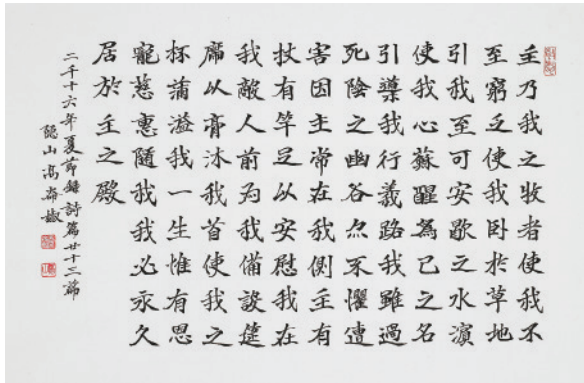 主乃我之牧者使我不
至窮乏使我卧於草地
引我至可安歇之水濵
使我心蘇醒為己之名
引導我行義路我雖過
死陰之幽谷亦不懼遭
害因主常在我側主有
杖有竿足以安慰我在
我敵人前為我備設筵
席以膏沐我首使我之
杯蒲溢我一生惟有恩
寵慈惠隨我我必永久
居於主之殿
二千十六年夏節錄詩篇廿十三篇
山馮